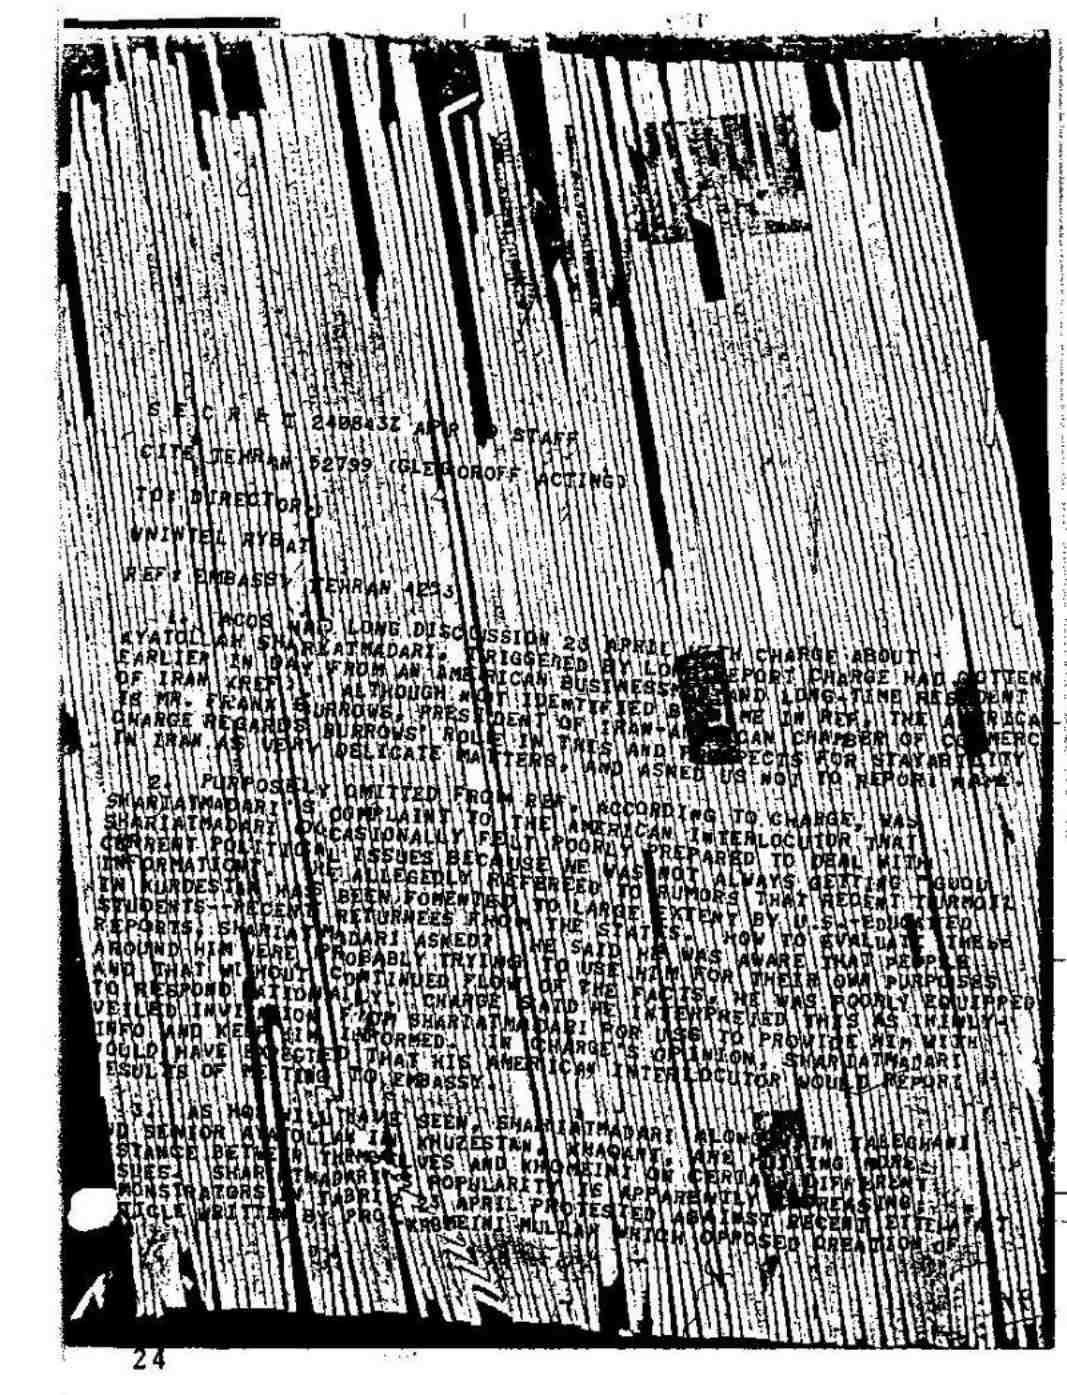 S E C R E T 240843Z APR STAFF
CITE TEHRAN 52799 (GLEGOROFF ACTING)
TO: DIRECTOR.
WNINTEL RYBAT
REF: EMBASSY TEHRAN 4253
1. ACOS HAD LONG DISCUSSION 23 APRIL WITH CHARGE ABOUT
AYATOLLAH SHARIATMADARI, TRIGGERED BY REPORT CHARGE HAD GOTTEN
EARLIER IN DAY FROM AN AMERICAN BUSINESSMAN AND LONG-TIME RESIDENT
OF IRAN (REF). ALTHOUGH NOT IDENTIFIED BY NAME IN REF, THE AMERICA
IS MR. FRANK BURROWS, PRESIDENT OF IRAN-AMERICAN CHAMBER OF COMMERC
CHARGE REGARDS BURROWS' ROLE IN THIS AND PROSPECTS FOR STAYABILITY
IN IRAN AS VERY DELICATE MATTERS, AND ASKED US NOT TO REPORT NAME.
2. PURPOSELY OMITTED FROM REF, ACCORDING TO CHARGE, WAS
SHARIATMADARI'S COMPLAINT TO THE AMERICAN INTERLOCUTOR THAT
SHARIATMADARI OCCASIONALLY FELT POORLY PREPARED TO DEAL WITH
CURRENT POLITICAL ISSUES BECAUSE HE WAS NOT ALWAYS GETTING "GOOD
INFORMATION". HE ALLEGEDLY REFEREED TO RUMORS THAT RECENT TURMOIL
IN KURDESTAN HAS BEEN FOMENTED TO LARGE EXTENT BY U.S.-EDUCATED
STUDENTS--RECENT RETURNEES FROM THE STATES. HOW TO EVALUATE THESE
REPORTS, SHARIATMADARI ASKED? HE SAID HE WAS AWARE THAT PEOPLE
AROUND HIM WERE PROBABLY TRYING TO USE HIM FOR THEIR OWN PURPOSES
AND THAT WITHOUT CONTINUED FLOW OF THE FACTS, HE WAS POORLY EQUIPPED
TO RESPOND RATIONALLY. CHARGE SAID HE INTERPRETED THIS AS THINLY-
VEILED INVITATION FROM SHARIATMADARI FOR USG TO PROVIDE HIM WITH
INFO AND KEEP HIM INFORMED. IN CHARGE'S OPINION, SHARIATMADARI
OULD HAVE EXPECTED THAT HIS AMERICAN INTERLOCUTOR WOULD REPORT
ESULTS OF MEETING TO EMBASSY.
3. AS HQS WILL HAVE SEEN, SHARIATMADARI ALONG WITH TALEGHANI
ND SENIOR AYATOLLAH IN KHUZESTAN, KHAQANI, ARE PUTTING MORE
STANCE BETWEEN THEMSELVES AND KHOMEINI ON CERTAIN DIFFERENT
SUES. SHARIATMADARI'S POPULARITY IS APPARENTLY INCREASING;
MONSTRATORS IN TABRIZ 23 APRIL PROTESTED AGAINST RECENT ETTELA'AT
TICLE WRITTEN BY PRO-KHOMEINI MULLAH WHICH OPPOSED CREATION OF
24